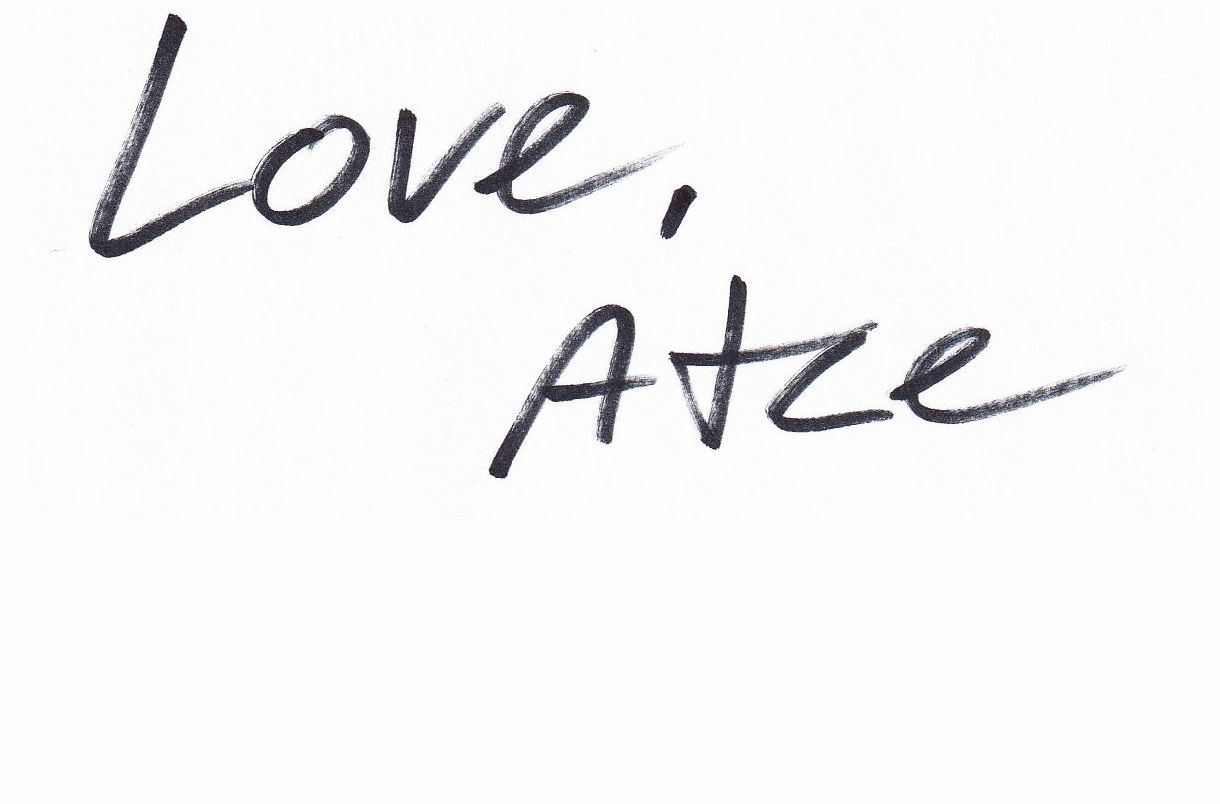 Love,
Atce